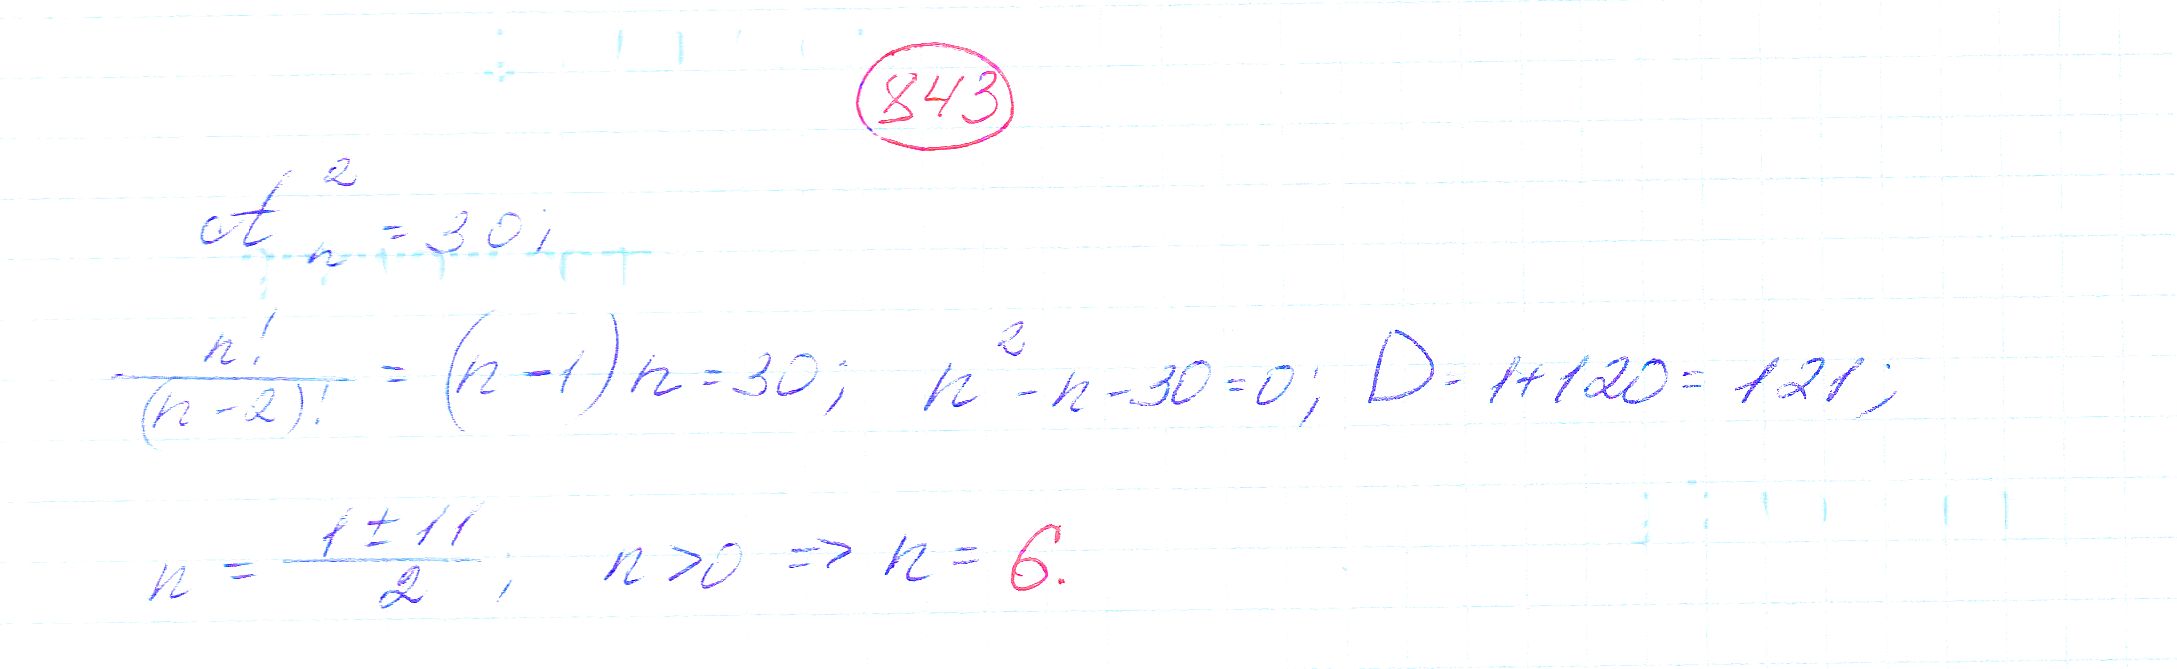 843
A_n^2 = 30;
n!/(n-2)! = (n-1)n = 30; n^2 - n - 30 = 0; D = 1 + 120 = 121;
n = (1 ± 11)/2; n > 0 => n = 6.